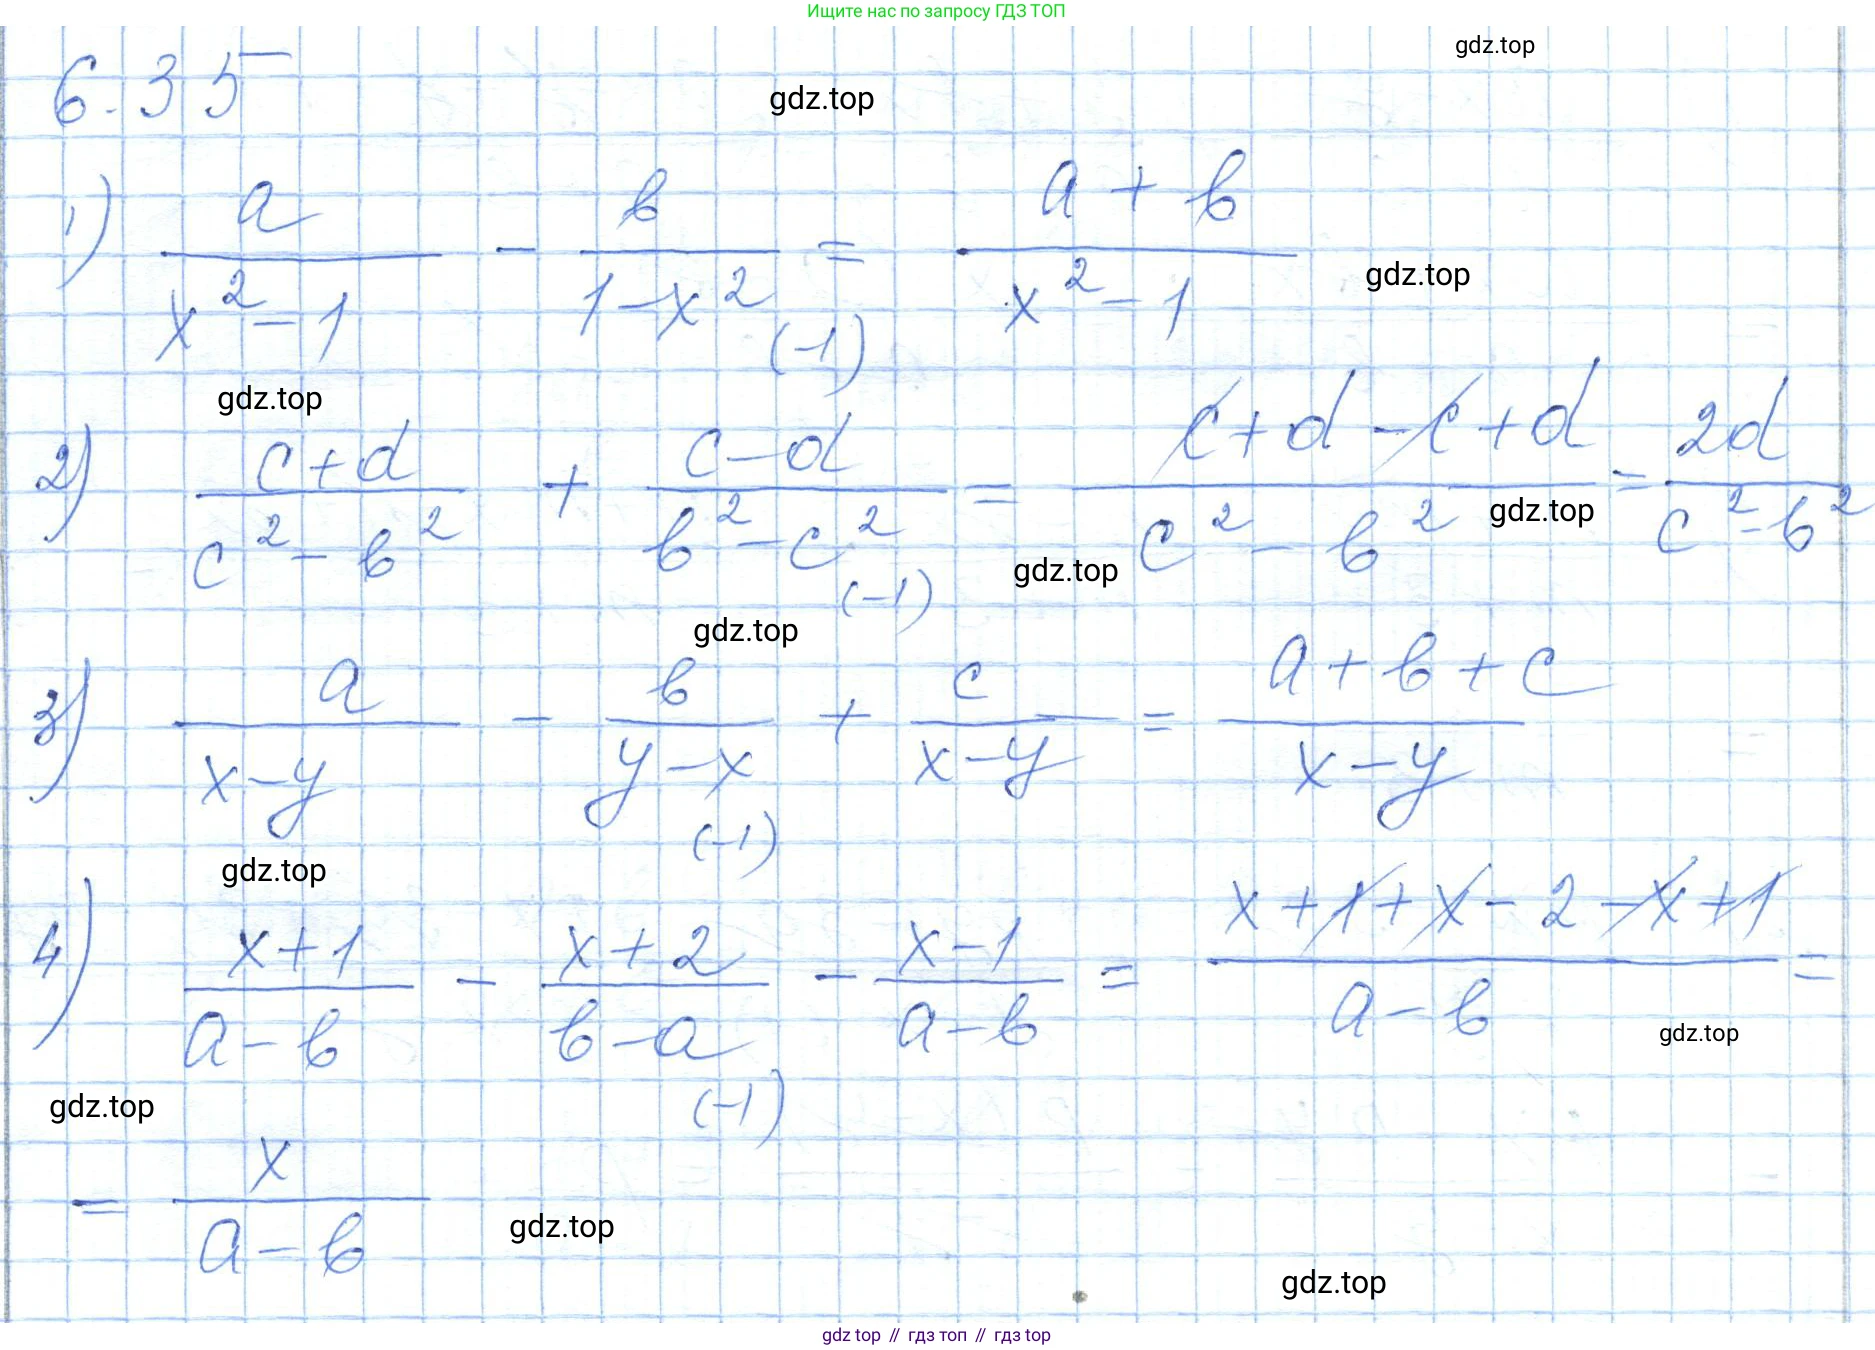 Ищите нас по запросу ГДЗ ТОП
gdz.top
6.35
gdz.top
1) a/(x² - 1) - b/(1 - x²) (-1) = (a + b)/(x² - 1)
gdz.top
gdz.top
2) (c + d)/(c² - b²) + (c - d)/(b² - c²) (-1) = (c + d - c + d)/(c² - b²) = 2d/(c² - b²)
gdz.top
gdz.top
gdz.top
3) a/(x - y) - b/(y - x) (-1) + c/(x - y) = (a + b + c)/(x - y)
gdz.top
4) (x + 1)/(a - b) - (x + 2)/(b - a) (-1) - (x - 1)/(a - b) = (x + 1 + x - 2 - x + 1)/(a - b) =
gdz.top
gdz.top
= x/(a - b)
gdz.top
gdz.top
gdz top // гдз топ // gdz top